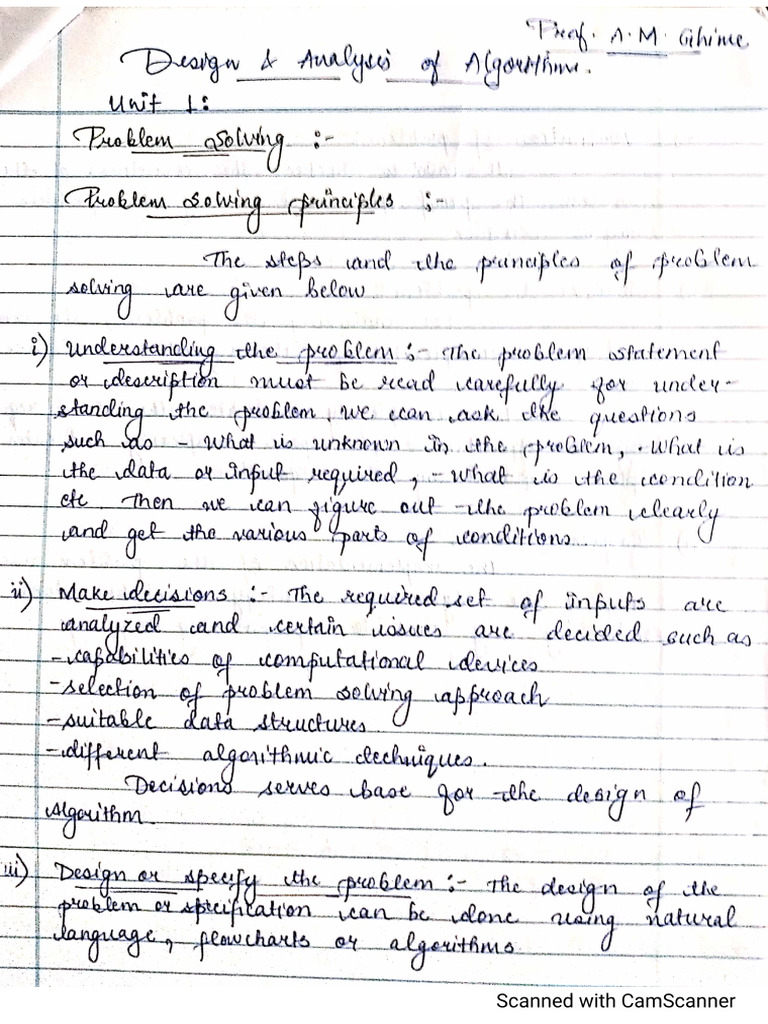 Prof. A. M. Ghime
Design & Analysis of Algorithm.
Unit 1:
Problem solving :-
Problem solving principles :-
The steps and the principles of problem
solving are given below
i) Understanding the problem :- The problem statement
or description must be read carefully for under-
standing the problem, we can ask the questions
such as - What is unknown in the problem, - What is
the data or input required, - What is the condition
etc Then we can figure out the problem clearly
and get the various parts of conditions.
ii) Make decisions :- The required set of inputs are
analyzed and certain issues are decided such as
-capabilities of computational devices
-selection of problem solving approach
-suitable data structures
-different algorithmic techniques.
Decisions serves base for the design of
algorithm.
iii) Design or specify the problem :- The design of the
problem or specification can be done using natural
language, flowcharts or algorithms
Scanned with CamScanner